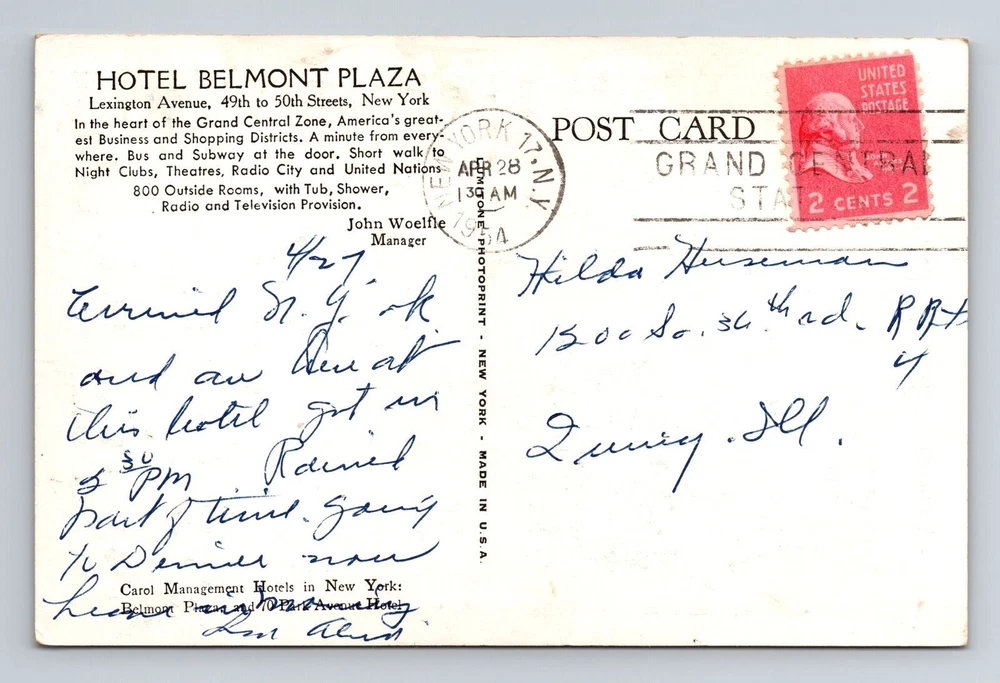 HOTEL BELMONT PLAZA
Lexington Avenue, 49th to 50th Streets, New York
In the heart of the Grand Central Zone, America's great-
est Business and Shopping Districts. A minute from every-
where. Bus and Subway at the door. Short walk to
Night Clubs, Theatres, Radio City and United Nations
800 Outside Rooms, with Tub, Shower,
Radio and Television Provision.
John Woelfle
Manager
4/27
Arrived N.Y. ok
and am here at
this hotel got in
5 30 PM Rained
part of time. Going
to Dinner now
Leave in morning
Carol Management Hotels in New York:
Belmont Plaza and 70 Park Avenue Hotel
LUMITONE PHOTOPRINT - NEW YORK - MADE IN U.S.A.
POST CARD
NEW YORK 17, N.Y.
APR 28
1 30 AM
1954
GRAND CENTRAL
STA
UNITED
STATES
POSTAGE
2 CENTS 2
Hilda Heiseman
1200 So. 36th rd. R Rt
4
Quincy. Ill.